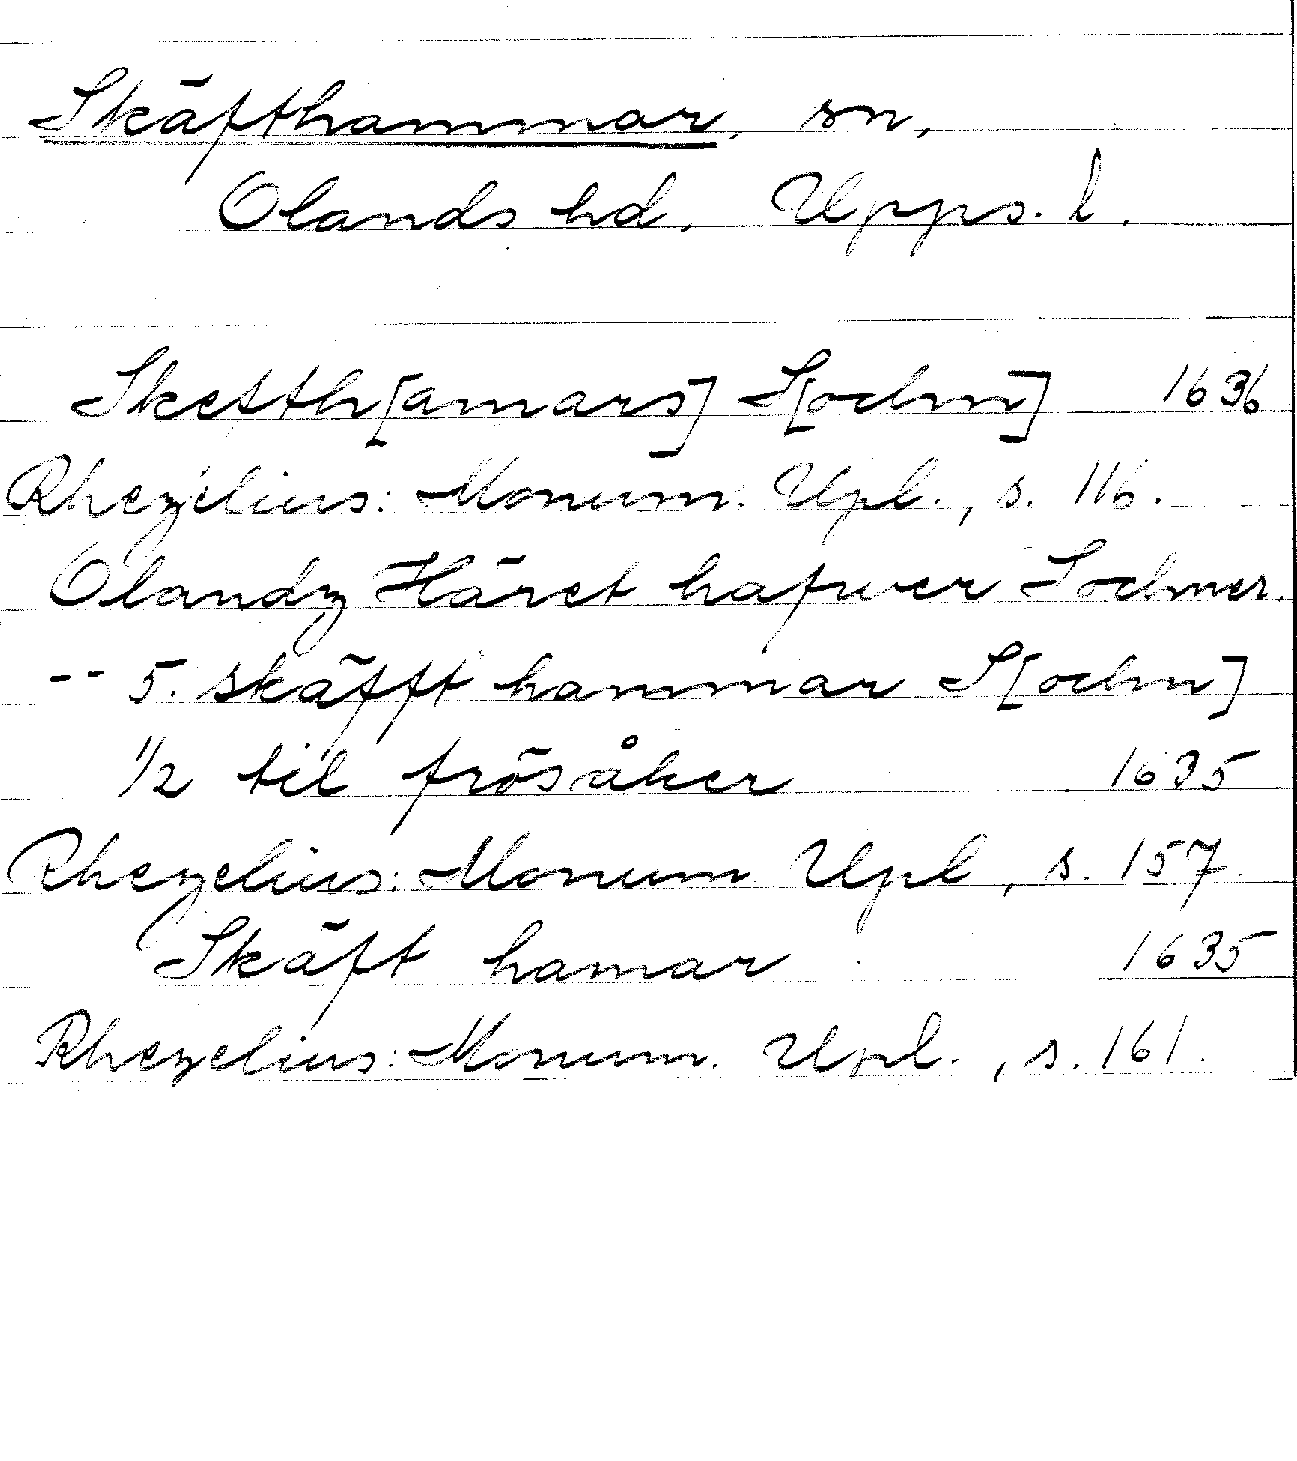 Skäfthammar, sn,
Olands hd, Upps. l.
Skefth[amars] S[ochn] 1636
Rhezelius: Monum. Upl., s. 116.
Olandz Häret hafwer Sochner.
-- 5. skäfft hammar S[ochn]
1/2 til frösåker 1635
Rhezelius: Monum Upl, s. 157
Skäft hamar 1635
Rhezelius: Monum. Upl., s. 161.